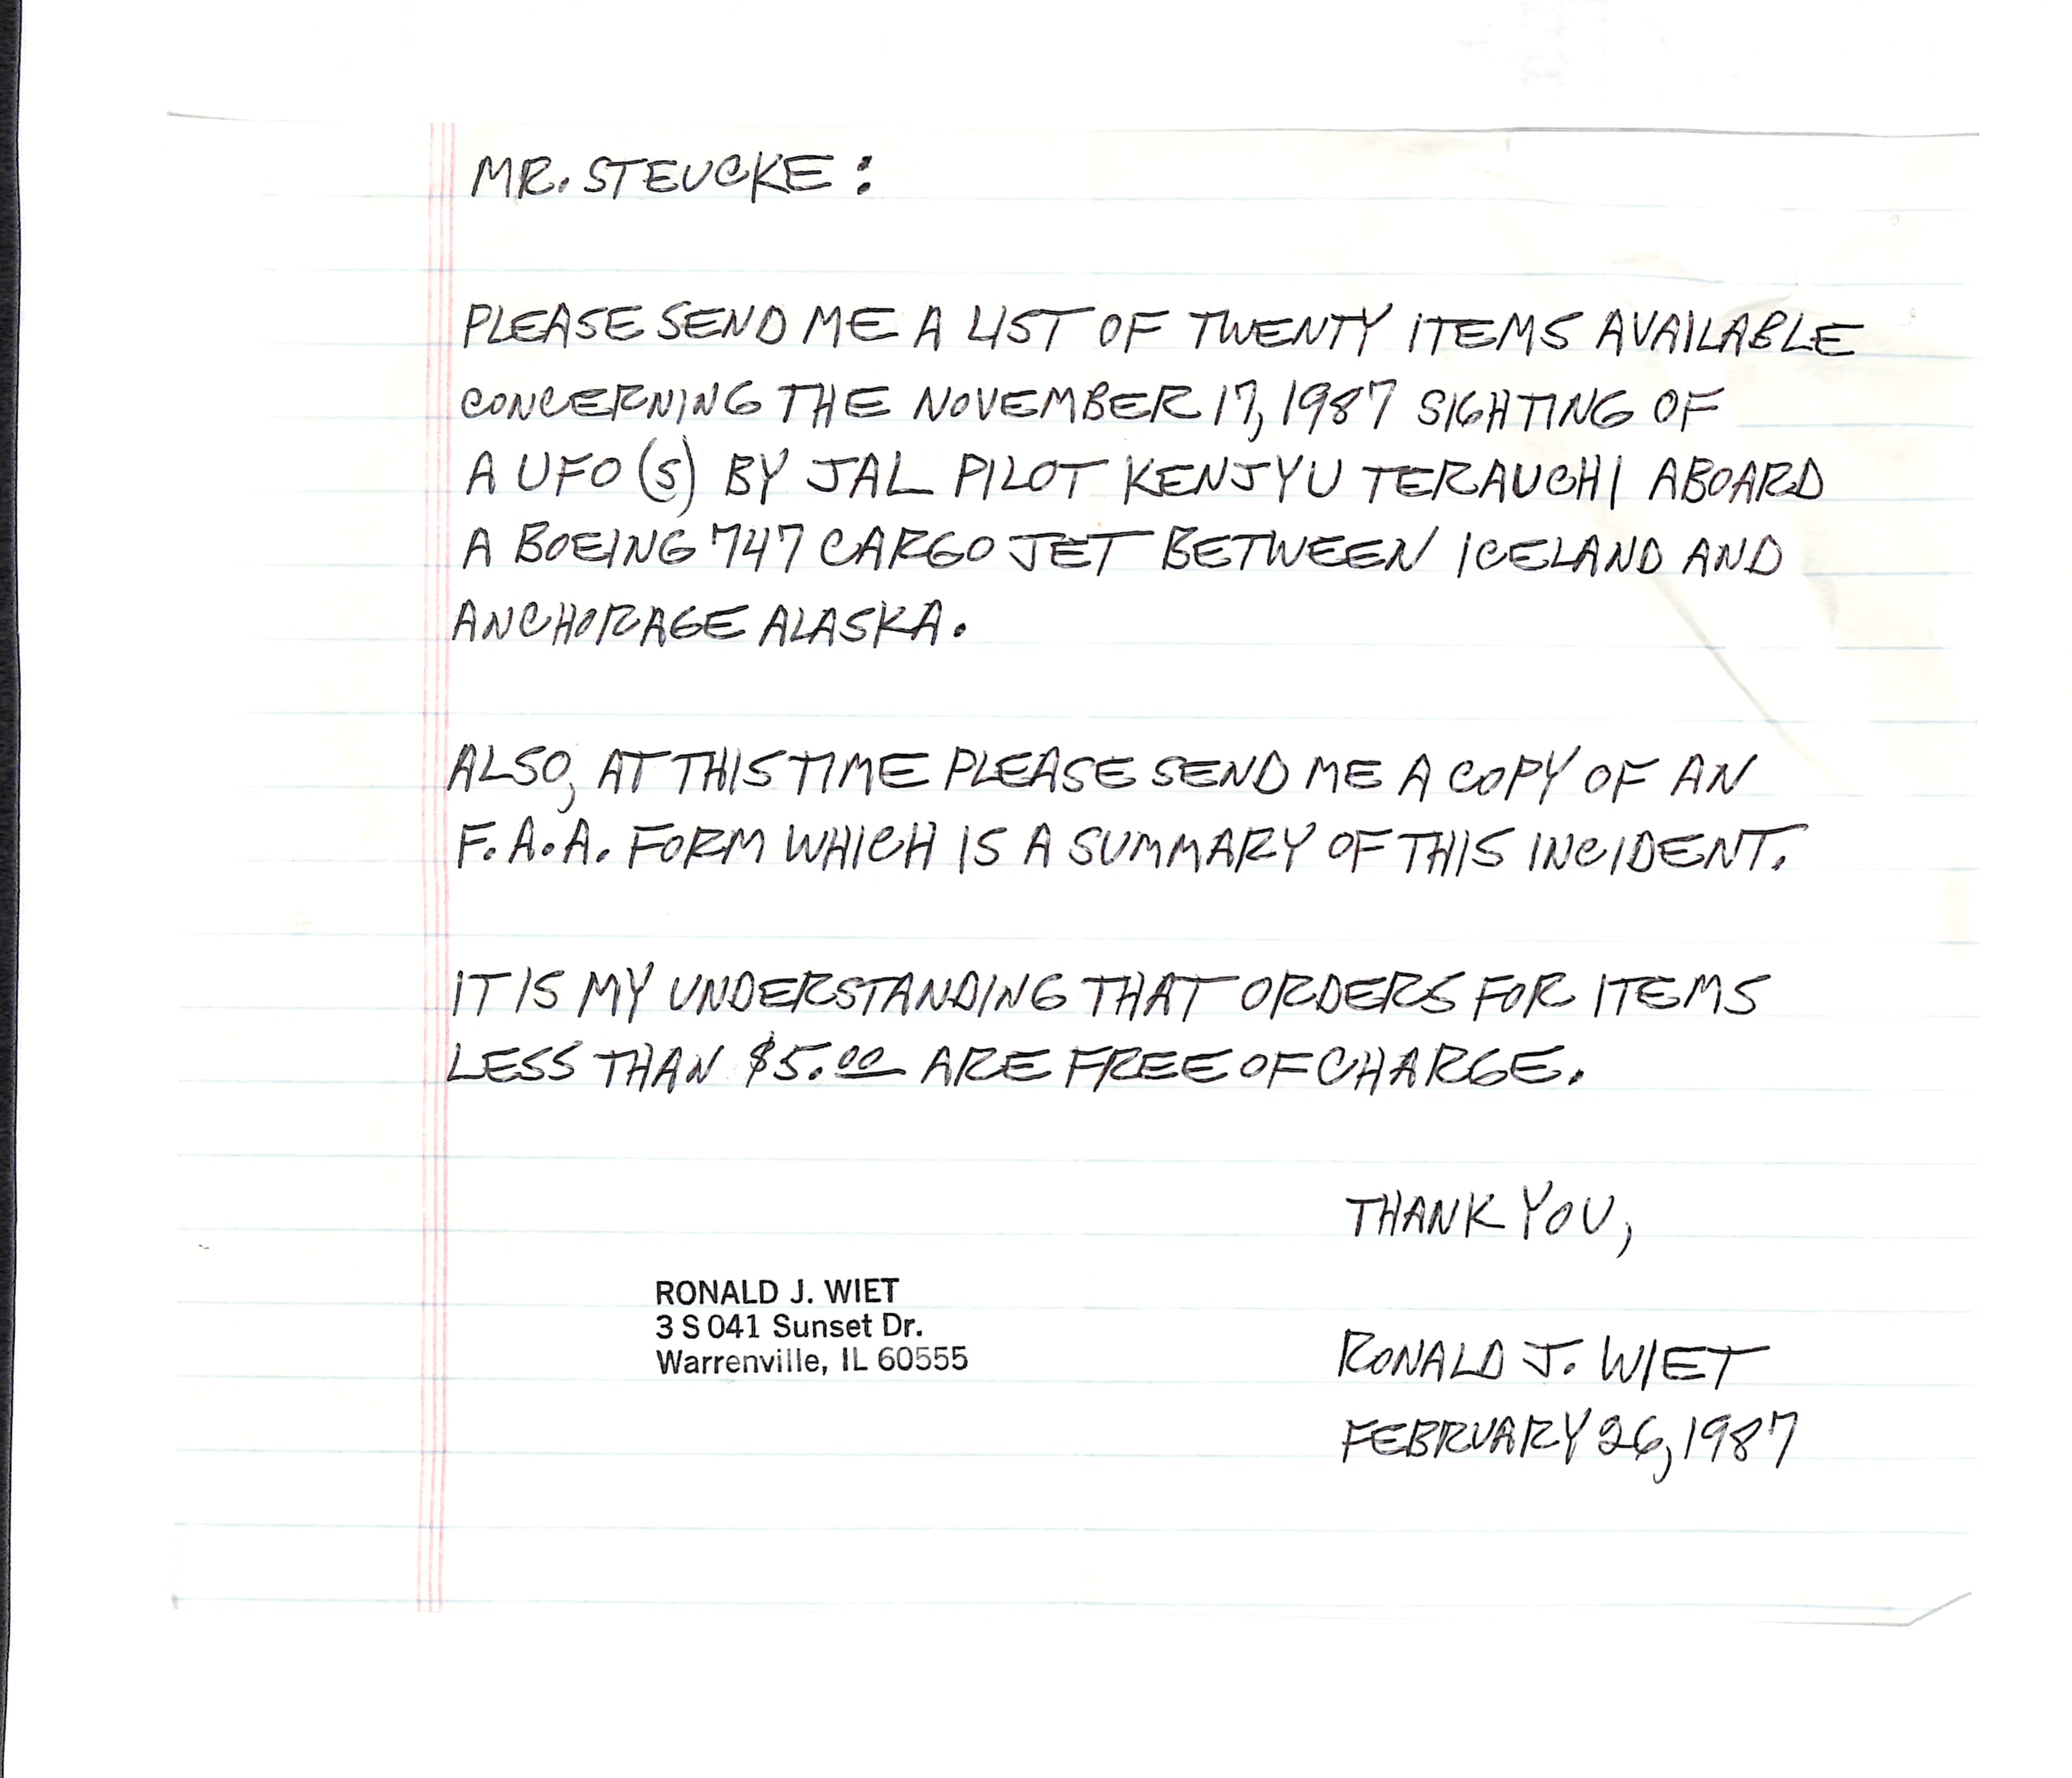 MR. STEUCKE:
PLEASE SEND ME A LIST OF TWENTY ITEMS AVAILABLE
CONCERNING THE NOVEMBER 17, 1987 SIGHTING OF
A UFO(S) BY JAL PILOT KENJYU TERAUCHI ABOARD
A BOEING 747 CARGO JET BETWEEN ICELAND AND
ANCHORAGE ALASKA.
ALSO, AT THIS TIME PLEASE SEND ME A COPY OF AN
F.A.A. FORM WHICH IS A SUMMARY OF THIS INCIDENT.
IT IS MY UNDERSTANDING THAT ORDERS FOR ITEMS
LESS THAN $5.00 ARE FREE OF CHARGE.
THANK YOU,
RONALD J. WIET
3 S 041 Sunset Dr.
Warrenville, IL 60555
RONALD J. WIET
FEBRUARY 26, 1987